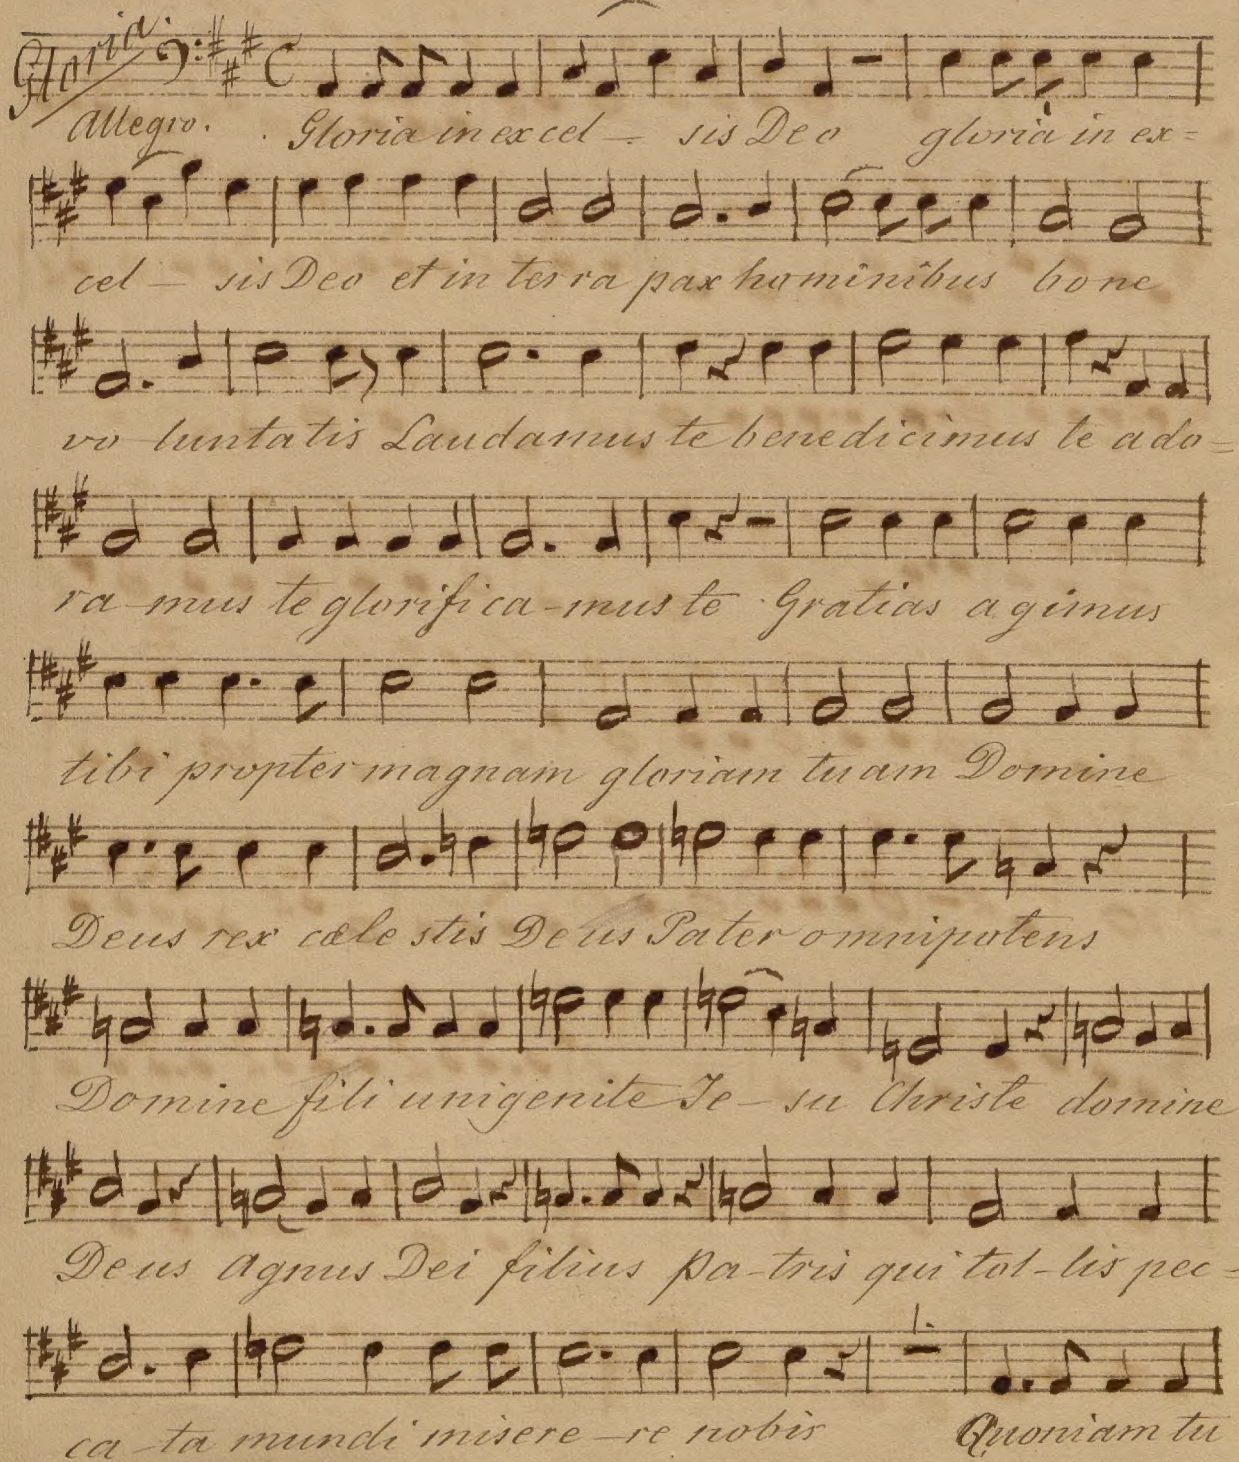 Gloria.
Allegro. Gloria in excel - sis Deo gloria in ex=
cel - sis Deo et in terra pax hominibus bone
vo luntatis Laudamus te benedicimus te ado=
ra-mus te glorifica-mus te Gratias agimus
tibi propter magnam gloriam tuam Domine
Deus rex cæle stis Deus Pater omnipotens
Domine fili unigenite Je - su Christe domine
Deus Agnus Dei filius Pa-tris qui tol-lis pec=
ca-ta mundi misere-re nobis Quoniam tu